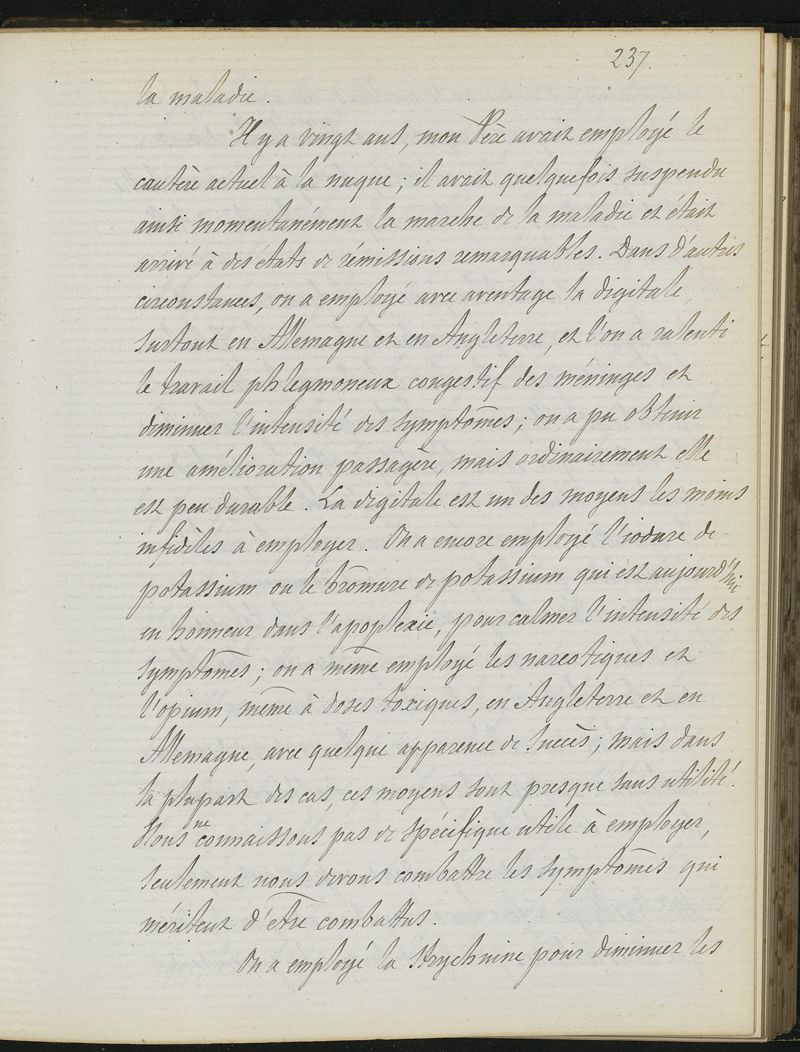 237.
la maladie.
Il y a vingt ans, mon Père avait employé le
cautère actuel à la nuque ; il avait quelquefois suspendu
ainsi momentanément la marche de la maladie et était
arrivé à des états de rémissions remarquables. Dans d'autres
circonstances, on a employé avec aventage la digitale,
surtout en Allemagne et en Angleterre, et l'on a ralenti
le travail phlegmoneux congestif des méninges et
diminuer l'intensité des symptômes ; on a pu obtenir
une amélioration passagère, mais ordinairement elle
est peu durable. La digitale est un des moyens les moins
infidèles à employer. On a encore employé l'iodure de
potassium ou le bromure de potassium qui est aujourd'hui
en honneur dans l'apoplexie, pour calmer l'intensité des
symptômes ; on a même employé les narcotiques et
l'opium, même à doses toxiques, en Angleterre et en
Allemagne, avec quelque apparence de succès ; mais dans
la plupart des cas, ces moyens sont presque sans utilité.
Nous ne connaissons pas de spécifique utile à employer,
seulement nous devons combattre les symptômes qui
méritent d'être combattus.
On a employé la strychnine pour diminuer les